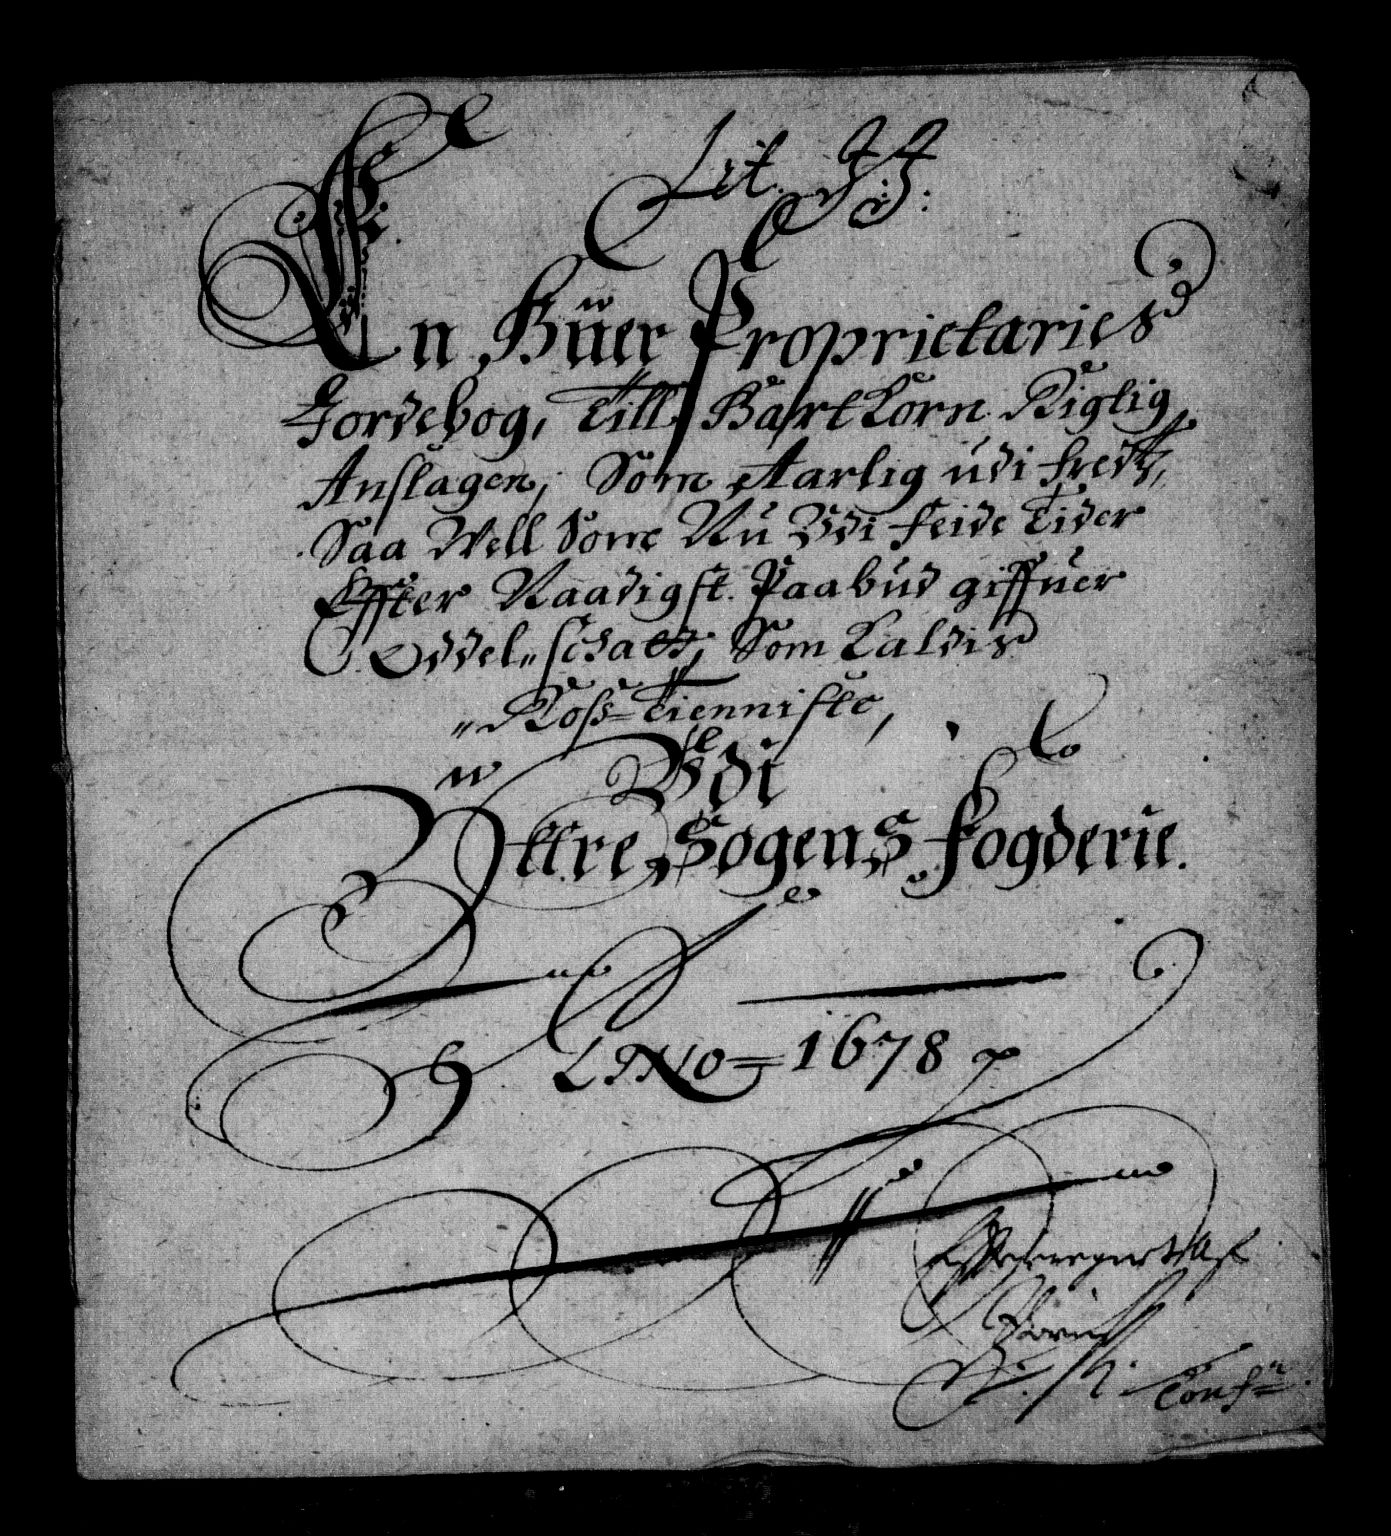 Lit. ZZ:
En Büer Proprietaries
Jordebog, Till HartKorn Rigtig
Anslagen, Som Aarlig udi fredtz,
Saa Well Som Nu Udi feide Tider
Effter Naadigst. Paabud giffuer
Oddel„schatt, Som Kaldis
„Ross=Tienniste,
Udi
Yttre Sogens Fogderie.
ANNo=1678